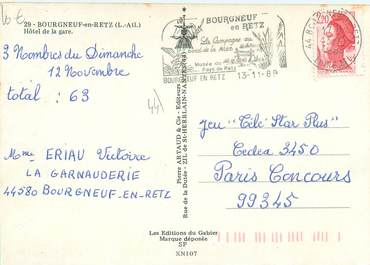 16 €
29 - BOURGNEUF-en-RETZ (L.-Atl.)
Hôtel de la gare.
3 Nombres du Dimanche
12 Novembre
total : 63
44
Mme ERIAU Victoire
LA GARNAUDERIE
44580 BOURGNEUF-EN-RETZ
Pierre ARTAUD & Cie - Editeurs
Rue de la Dutée - Z.I.L. de St-HERBLAIN-NANTES
BOURGNEUF
en RETZ
La Campagne au
bord de la Mer
Musée du
Pays de Retz
BOURGNEUF EN RETZ 13-11-89
2,20
Jeu "Télé Star Plus"
Cedex 3450
Paris Concours
99345
Les Editions du Gabier
Marque déposée
SP
XN107